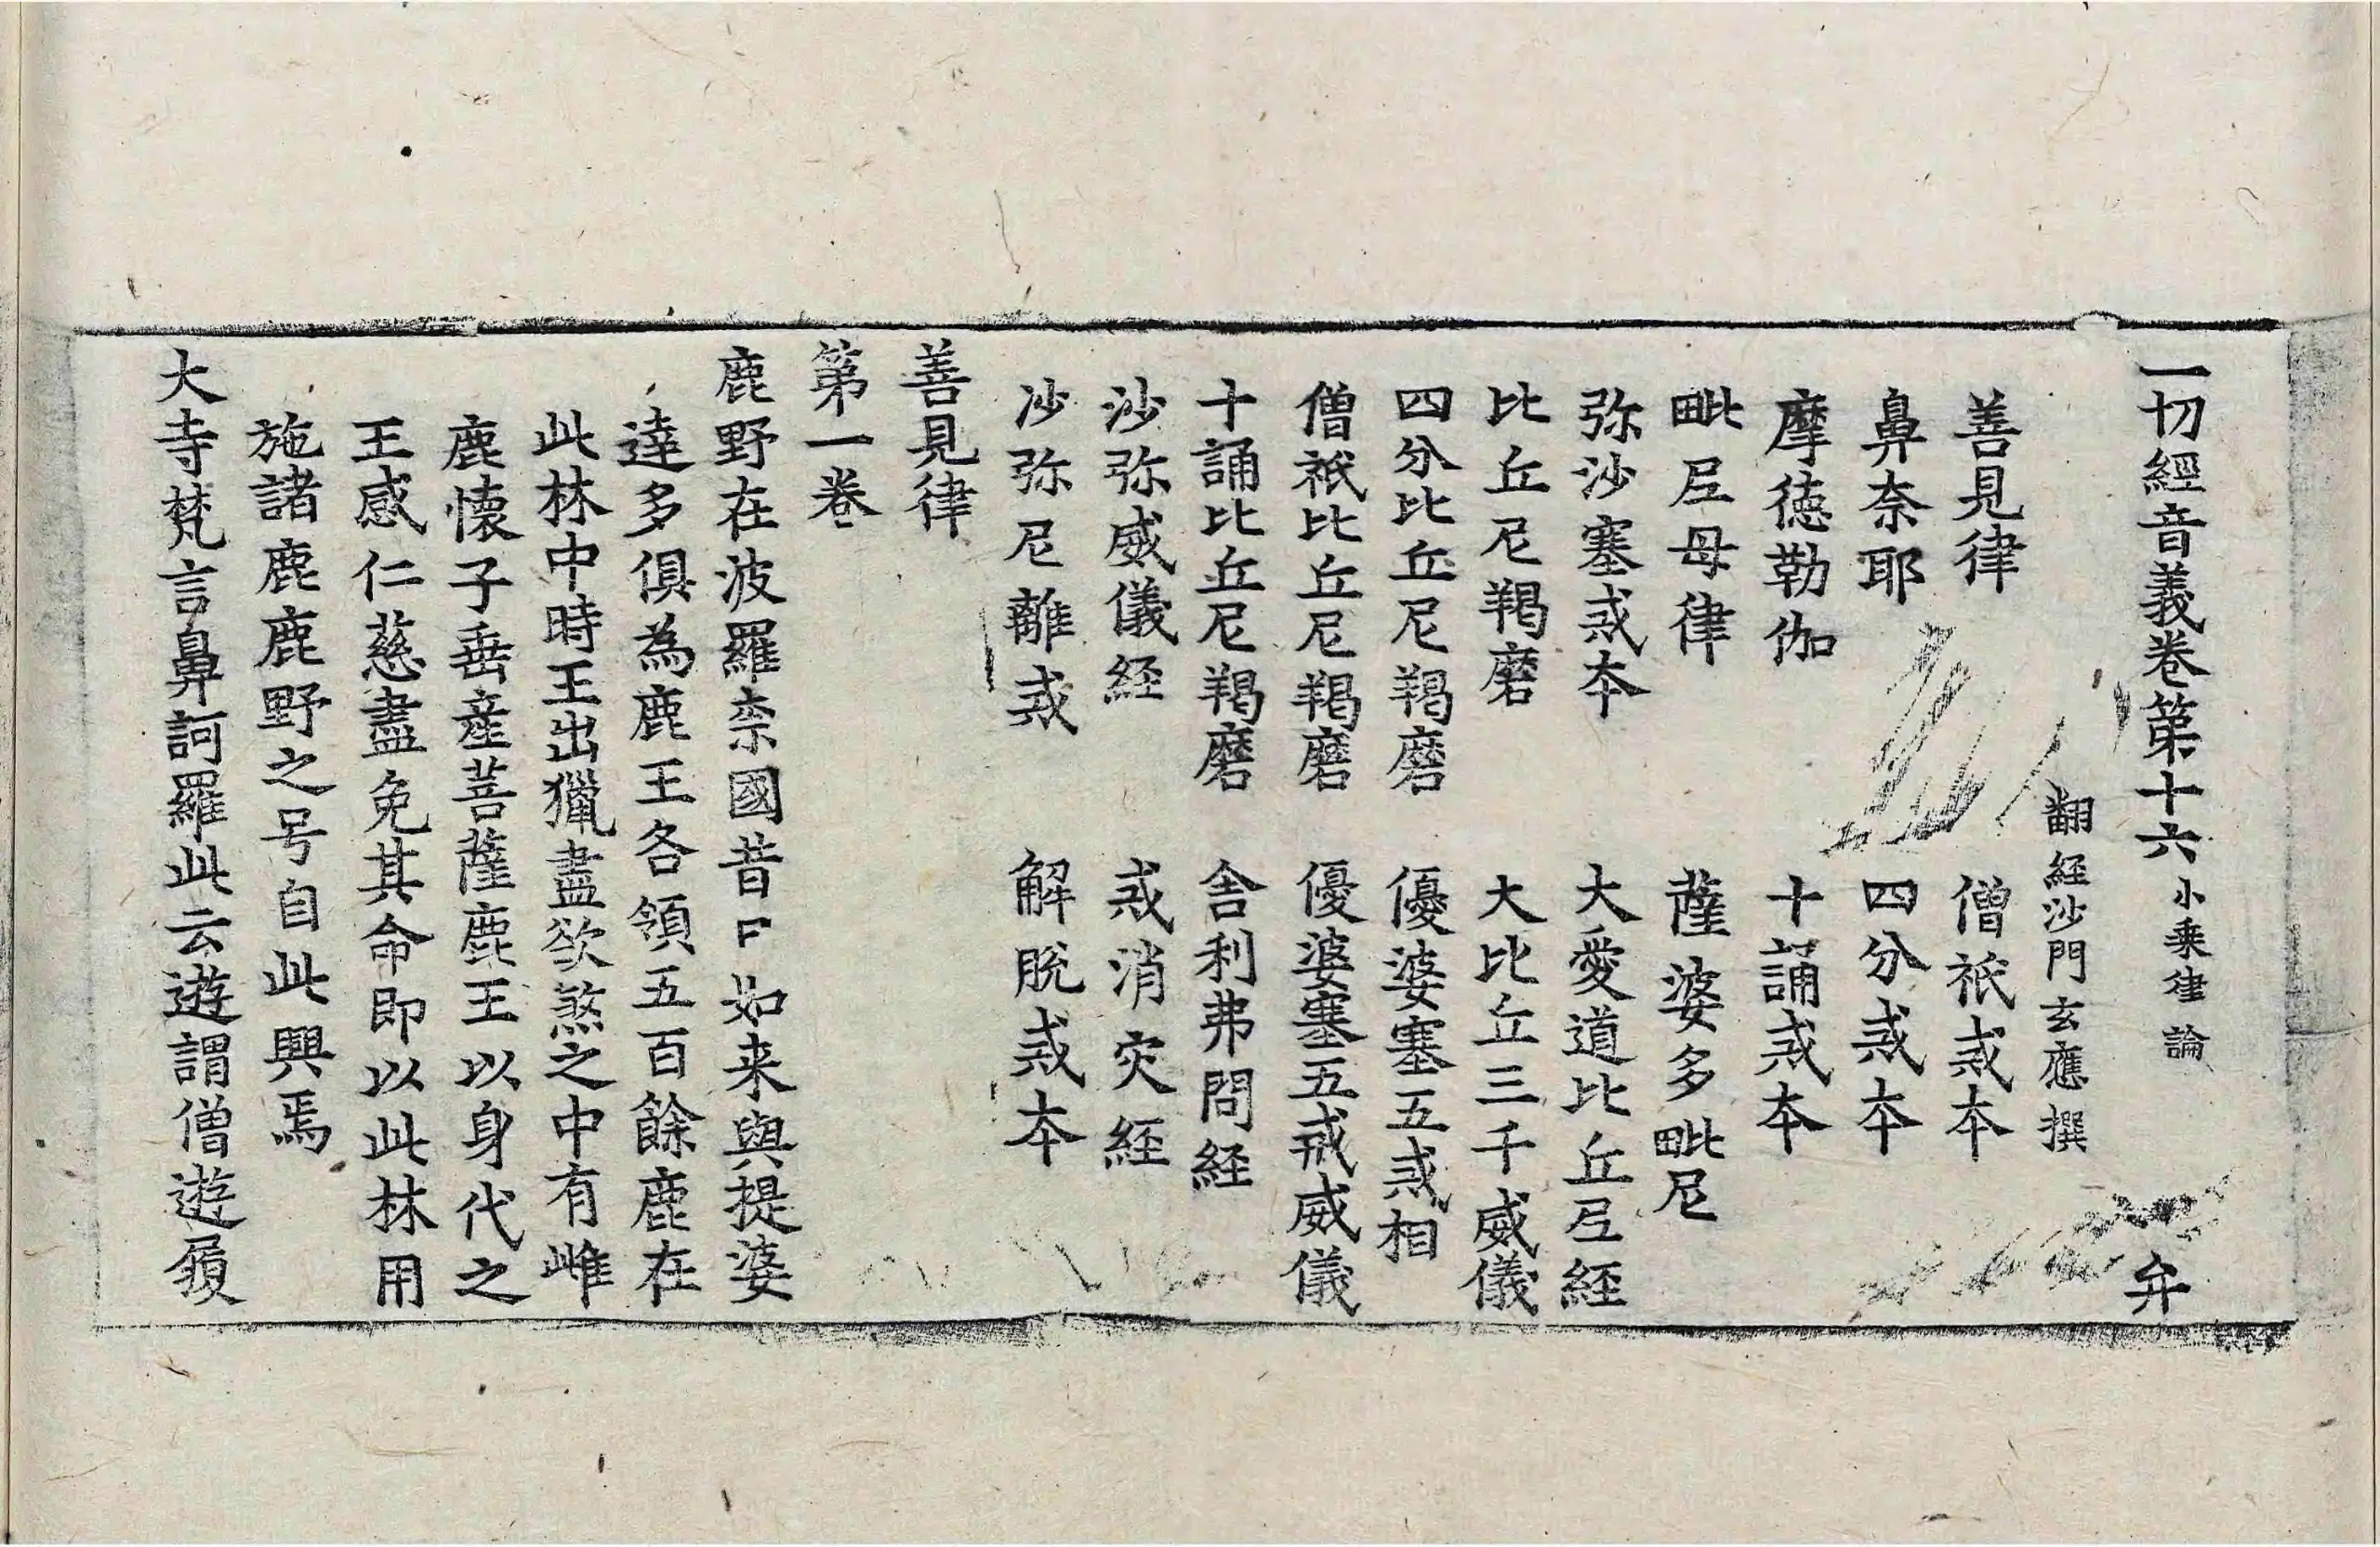 一切經音義卷第十六 小乗律論 弁
翻経沙門玄應撰
善見律 僧祇戒本
鼻奈耶 四分戒本
摩徳勒伽 十誦戒本
毗尼母律 薩婆多毗尼
弥沙塞戒本 大愛道比丘尼経
比丘尼羯磨 大比丘三千威儀
四分比丘尼羯磨 優婆塞五戒相
僧祇比丘尼羯磨 優婆塞五戒威儀
十誦比丘尼羯磨 舎利弗問経
沙弥威儀経 戒消灾経
沙弥尼離戒 解脱戒本
善見律
第一卷
鹿野在波羅柰國昔日如来與提婆
達多俱為鹿王各領五百餘鹿在
此林中時王出獵盡欲煞之中有雌
鹿懷子垂産菩薩鹿王以身代之
王感仁慈盡免其命即以此林用
施諸鹿鹿野之号自此興焉
大寺梵言鼻訶羅此云遊謂僧遊履